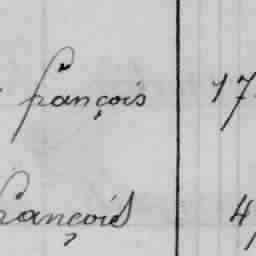 françois 17
françois 4